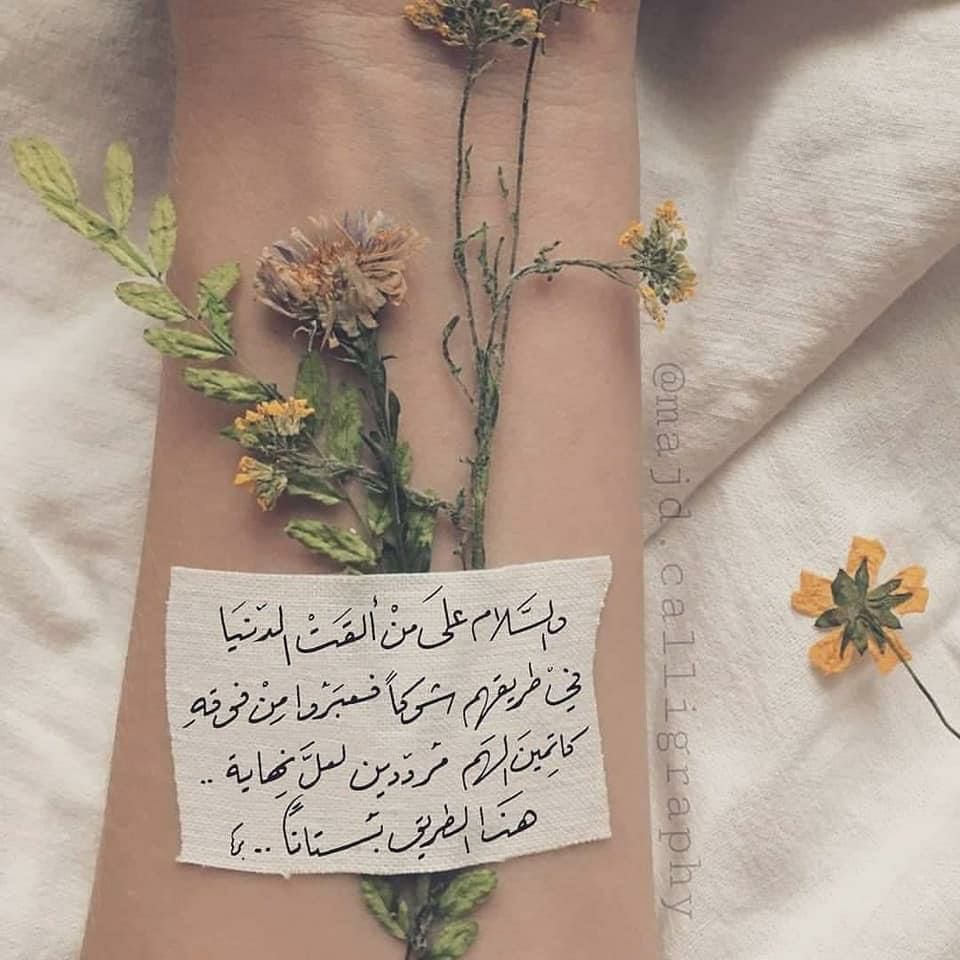 والسَّلام علَى مَنْ ألقَتْ الدّنيَا
فيْ طريقهم شوكاً فعبَرُوا مِنْ فوقهِ
كاتمِينَ الهَم مُردّدين لعلَّ نهاية ..
هذَا الطريق بُستاناً ..
@majd.calligraphy